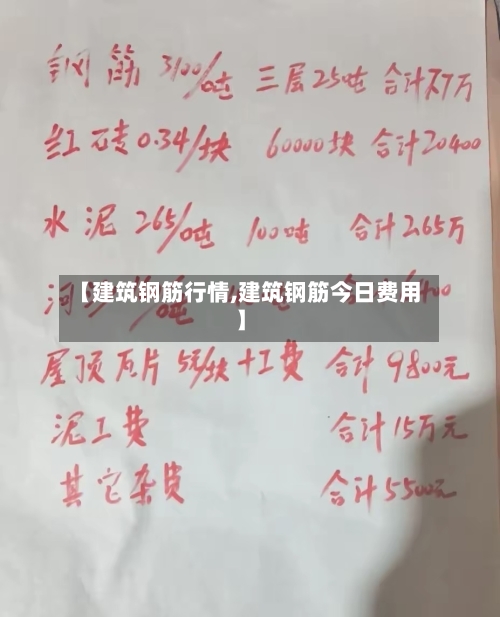 钢筋 3100/吨 三层25吨 合计7.7万
红砖0.34/块 60000块 合计20400
水泥 265/吨 100吨 合计2.65万
【建筑钢筋行情,建筑钢筋今日费用
】
屋顶瓦片 5元/块+工费 合计9800元
泥工费 合计15万元
其它杂费 合计5500元